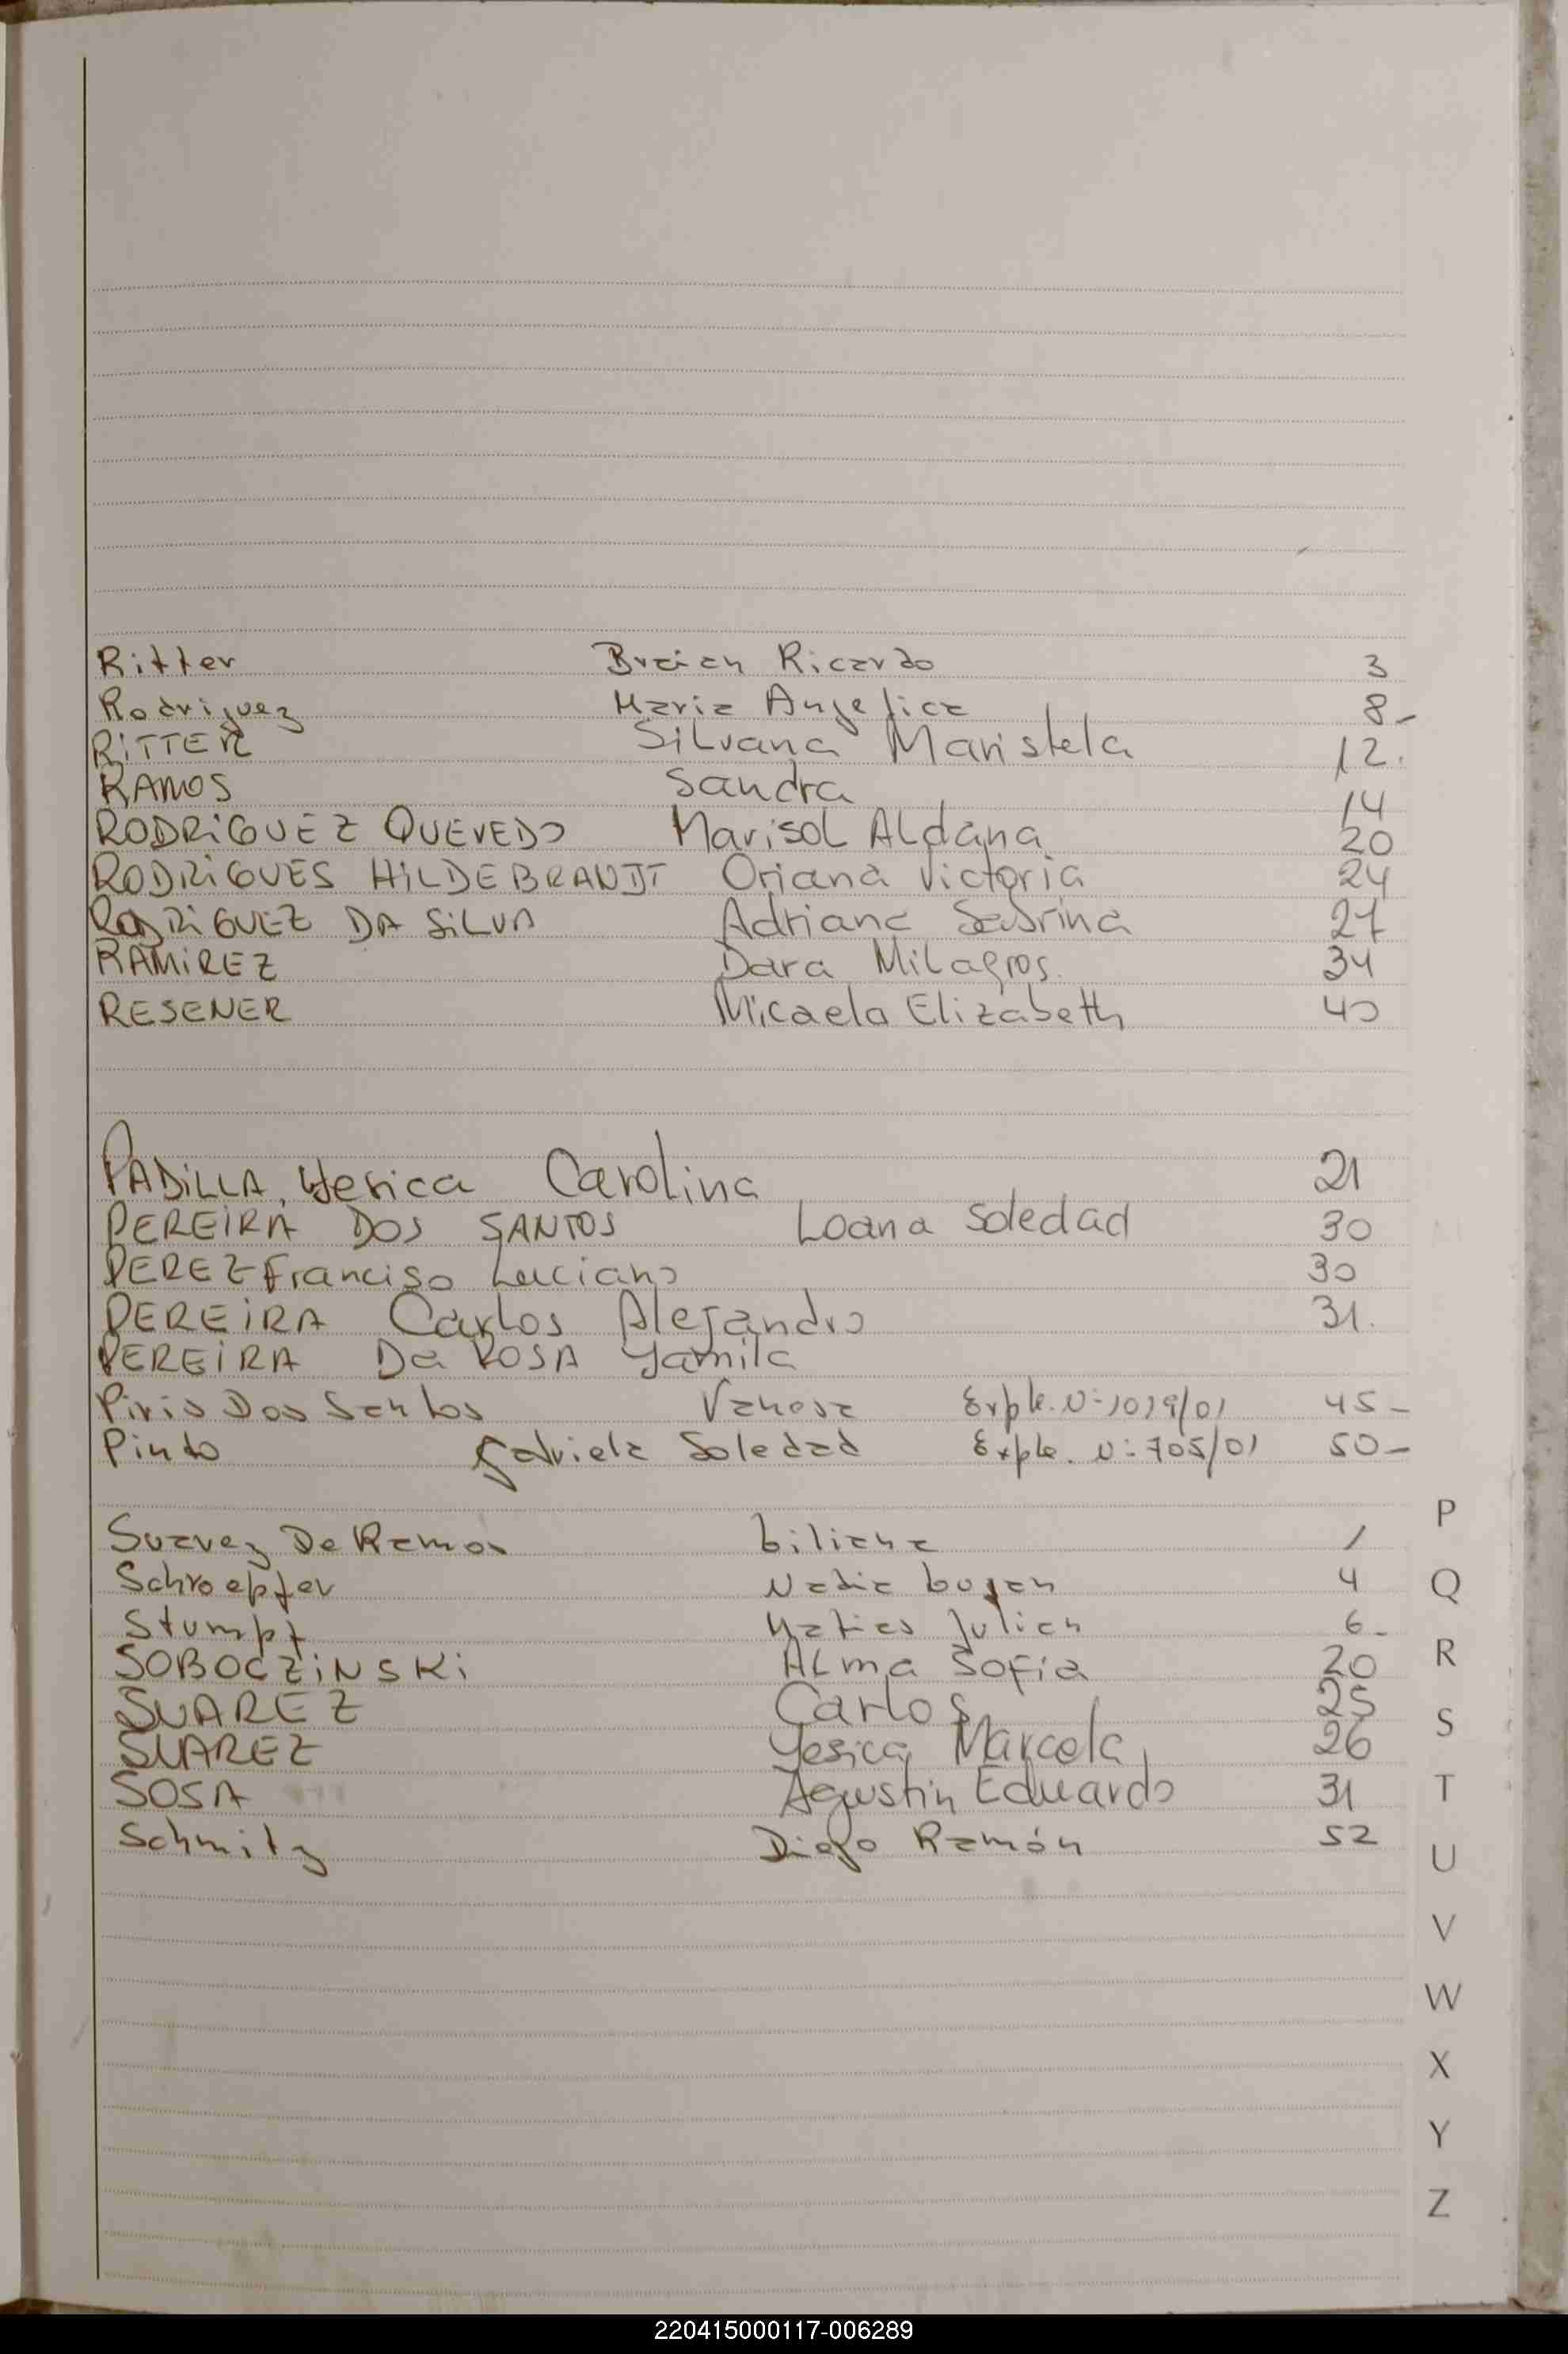 Ritter Braian Ricardo 3
Rodriguez Maria Angelica 8-
RITTER Silvana Maristela 12.
RAMOS Sandra 14
RODRIGUEZ QUEVEDO Marisol Aldana 20
RODRIGUES HILDEBRANDT Oriana Victoria 24
RODRIGUEZ DA SILVA Adriana Sabrina 27
RAMIREZ Dara Milagros. 34
RESENER Micaela Elizabeth 40
PADILLA, Yesica Carolina 21
PEREIRA DOS SANTOS Loana Soledad 30
PEREZ Franciso Luciano 30
PEREIRA Carlos Alejandro 31.
PEREIRA Da ROSA Yamila
Piris Dos Santos Vanesa Expte. N=1019/01 45-
Pinto Gabriela Soledad Expte. N=705/01 50-
Suarez De Ramos Liliana 1
Schroepfer Nadia 4
Stumpf Matias Julian 6-
SOBOCZINSKI Alma Sofia 20
SUAREZ Carlos 25
SUAREZ Yesica Marcela 26
SOSA Agustin Eduardo 31
Schmitz Diego Ramón 52
P
Q
R
S
T
U
V
W
X
Y
Z
220415000117-006289